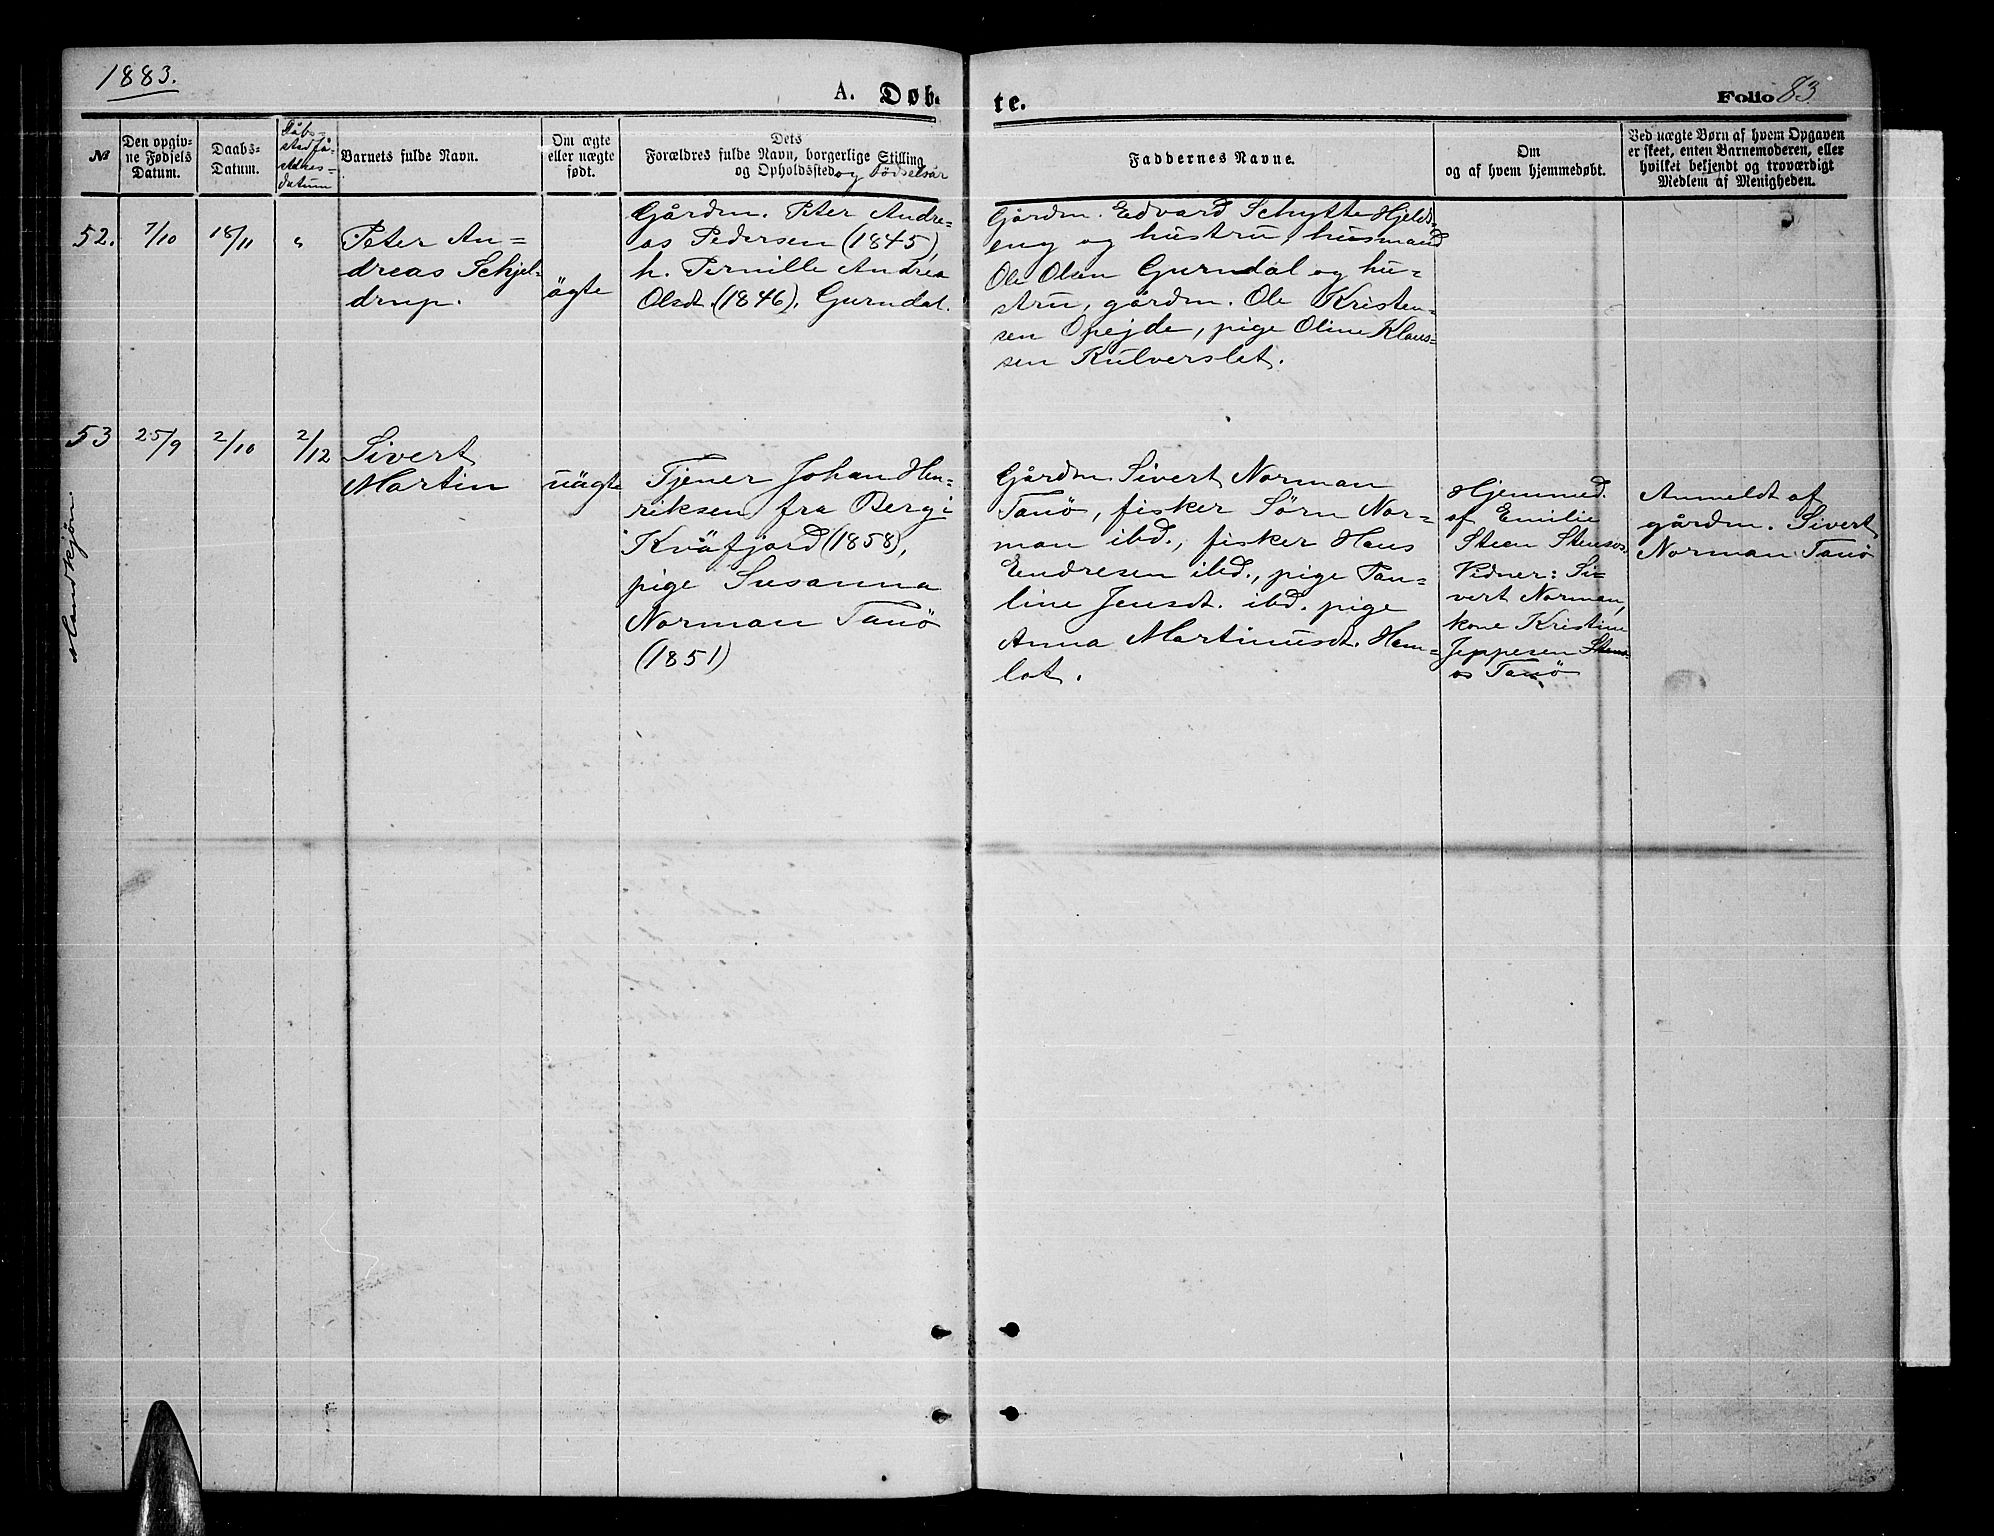 1883.
A. Døb-
te.
Folio 83
№
Den opgiv-
ne Fødsels
Datum.
Daabs-
Datum.
Dåbs-
stadfä-
stelses-
datum
Barnets fulde Navn.
Om ægte
eller uægte
født.
Dets
Forældres fulde Navn, borgerlige Stilling
og Opholdssted og Fødselsår
Faddernes Navne.
Om
og af hvem hjemmedøbt.
Ved uægte Børn af hvem Opgaven
er skeet, enten Barnemoderen, eller
hvilket bekjendt og troværdigt
Medlem af Menigheden.
52.
7/10
18/11
"
Peter An=
dreas Schjel-
drup.
ägte
Gårdm. Peter Andre-
as Pedersen (1845),
h. Pernille Andrea
Olsdt. (1846). Gurndal.
Gårdm. Edvard Schytte Hjelds-
eng og hustru, husmand
Ole Olsen Gurndal og hu-
stru, gårdm. Ole Kristen-
sen Opejde, pige Oline Klaus-
sen Kulverslet.
53
25/9
2/10
2/12
Sivert
Martin
uägte
Tjener Johan Hen-
riksen fra Berg i
Kväfjord (1858),
pige Susanna
Norman Tanö
(1851)
Gårdm. Sivert Norman
Tanö, fisker Sörn Nor-
man ibd., fisker Hans
Endresen ibd., pige Pau-
line Jensdt. ibd. pige
Anna Martinusdt. Ham-
lot.
Hjemmed.
af Emilie
Steen Stensos.
Vidner: Si-
vert Norman,
kone Kristine
Jeppesen Stens-
os Tanö
Anmeldt af
gårdm. Sivert
Norman Tanö